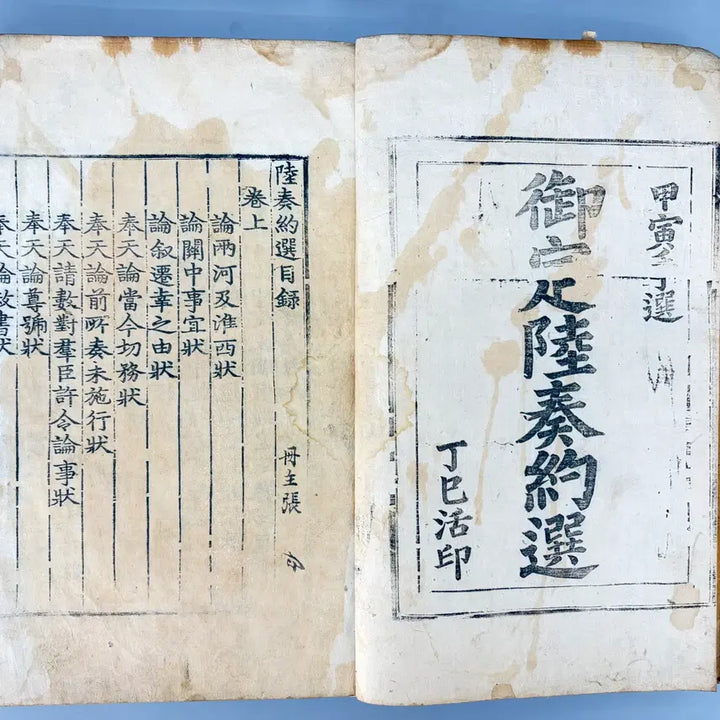 甲寅選
御定陸奏約選
丁巳活印
陸奏約選目錄
冊主張
卷上
論兩河及淮西狀
論關中事宜狀
論敘遷幸之由狀
奉天論當今切務狀
奉天論前所奏未施行狀
奉天請數對羣臣許令論事狀
奉天論尊號狀
奉天論赦書狀